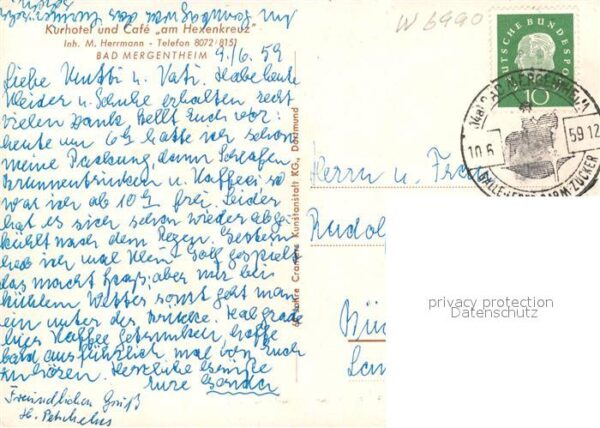 Kurhotel und Café „am Hexenkreuz"
Inh. M. Herrmann - Telefon 8072/8151
BAD MERGENTHEIM 9./6. 59
Liebe Mutti u. Vati. Habe heute
Kleider u. Schuhe erhalten recht
vielen Dank stellt Euch vor:
heute um 6h hatte ich schon
meine Packung, dann Schlafen,
Brunnentrinken u. Kaffee so
war ich ab 10h frei. Leider
hat es sich schon wieder abge
kühlt nach dem Regen. Gestern
hab ich mal Klein Golf gespielt
das macht Spaß, aber nur bei
kühlem Wetter sonst geht man
ein unter der Brücke. Hab grade
Kaffee getrunken, hoffe
bald ausführlich mal von Euch
zu hören. Herzliche Grüße
Eure
Freundlichen Gruß
H.
Jahre Cramers Kunstanstalt KG, Dortmund
W 6990
DEUTSCHE BUNDESPOST
10
BAD MERGENTHEIM
10.6
59.12
GALLE-LEBER-DARM-ZUCKER
Herrn u.
Rudol
privacy protection
Datenschutz